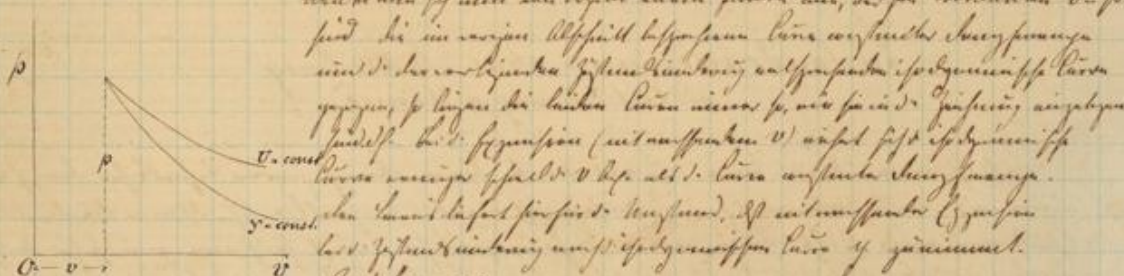 sind die im vorigen Abschnitt besprochene Curve constanter Dampfmenge
und d. der vorliegenden Zustandsänderung entsprechenden isodynamische Curve
gezogen, so liegen die beiden Curven immer so, wie sie in d. Zeichnung angegeben
sind. Bei d. Expansion (mit wachsendem v) nähert sich d. isodynamische
Curve weniger schnell d. v Axe als d. Curve constanter Dampfmenge.
Den Beweis liefert hierfür d. Umstand, daß mit wachsender Expansion
bei d. Zustandsänderung nach d. isodynamischen Curve y zunimmt.
p
p
U = const.
y = const.
O v v